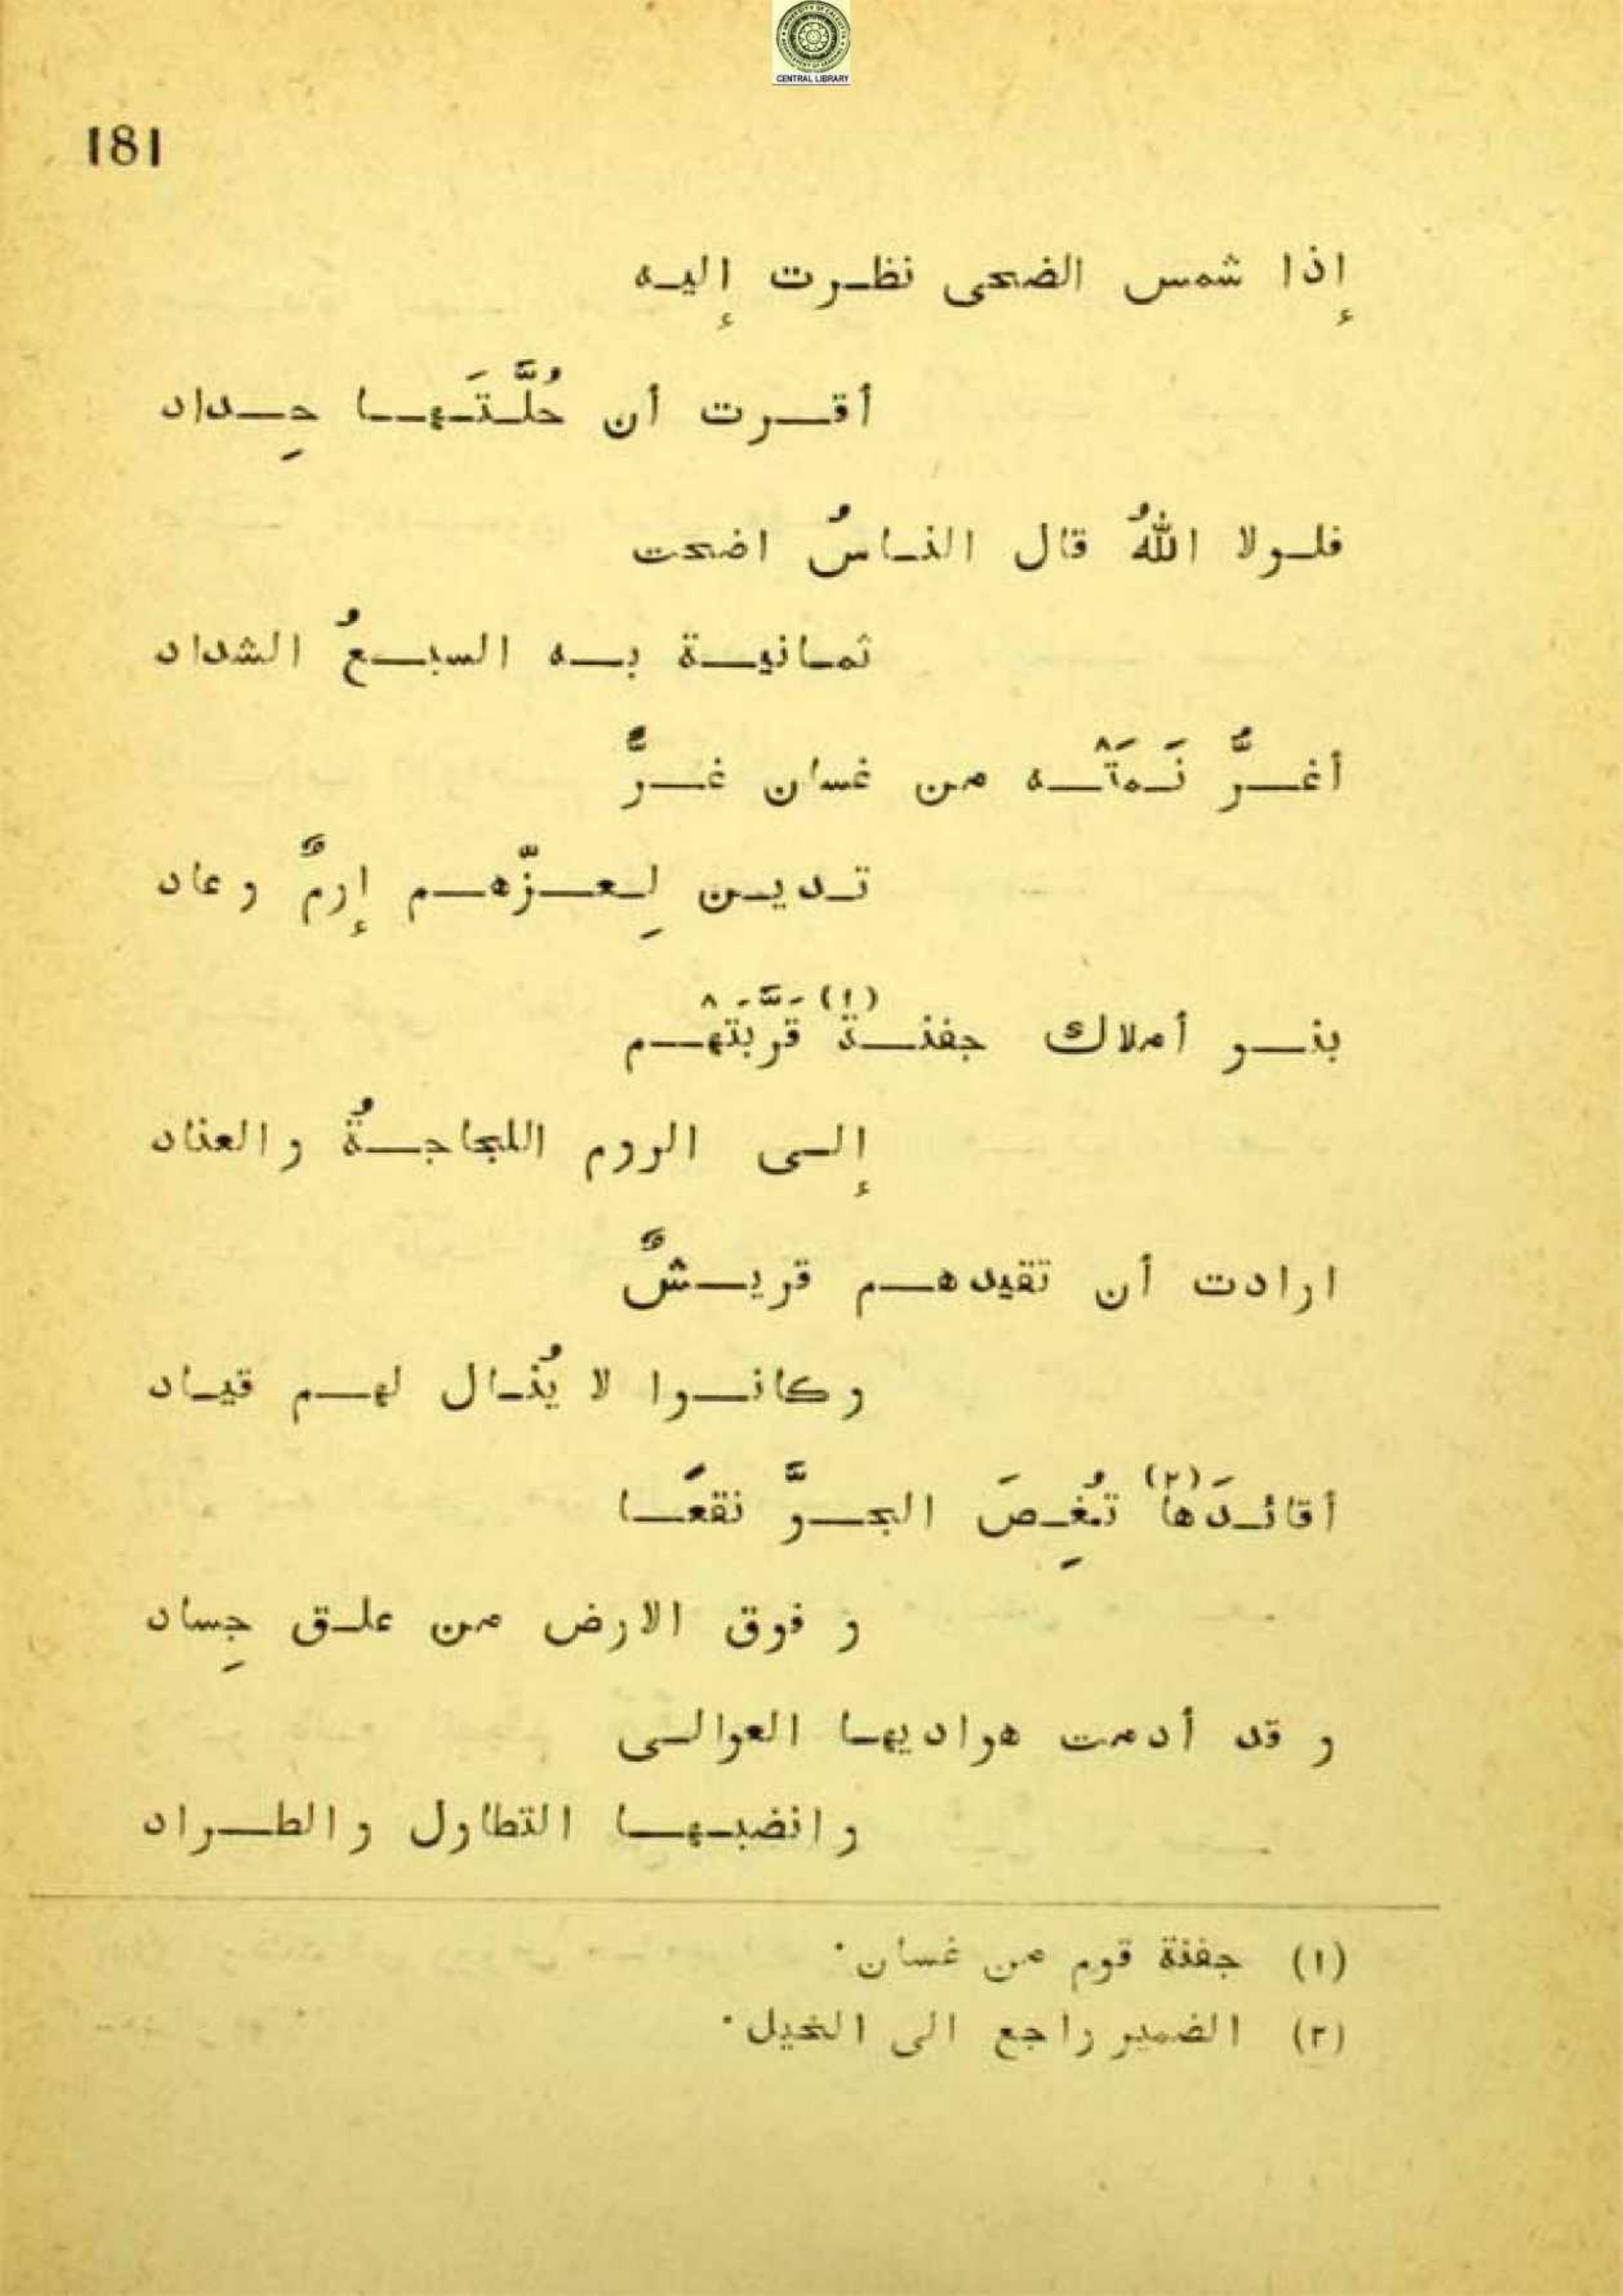 CENTRAL LIBRARY
181
إذا شمس الضحى نظرت إليه
أقرت أن حُلَّتَها حِداد
فلولا اللهُ قال الناسُ اضحت
ثمانية به السبعُ الشداد
أغرُّ نَمَتْه من غسان غرٌّ
تدين لِعزّهم إرمٌ وعاد
بنو أملاك جفنة (١) قَرَّبَتْهم
إلى الروم اللجاجةُ والعناد
ارادت أن تقيدهم قريشٌ
وكانوا لا يُذال لهم قياد
أقائدَها (٢) تُغِصَ الجوَّ نقعًا
و فوق الارض من علق جِساد
و قد أدمت هواديها العوالى
وانضبها التطاول والطراد
(١) جفنة قوم من غسان.
(٢) الضمير راجع الى الخيل.